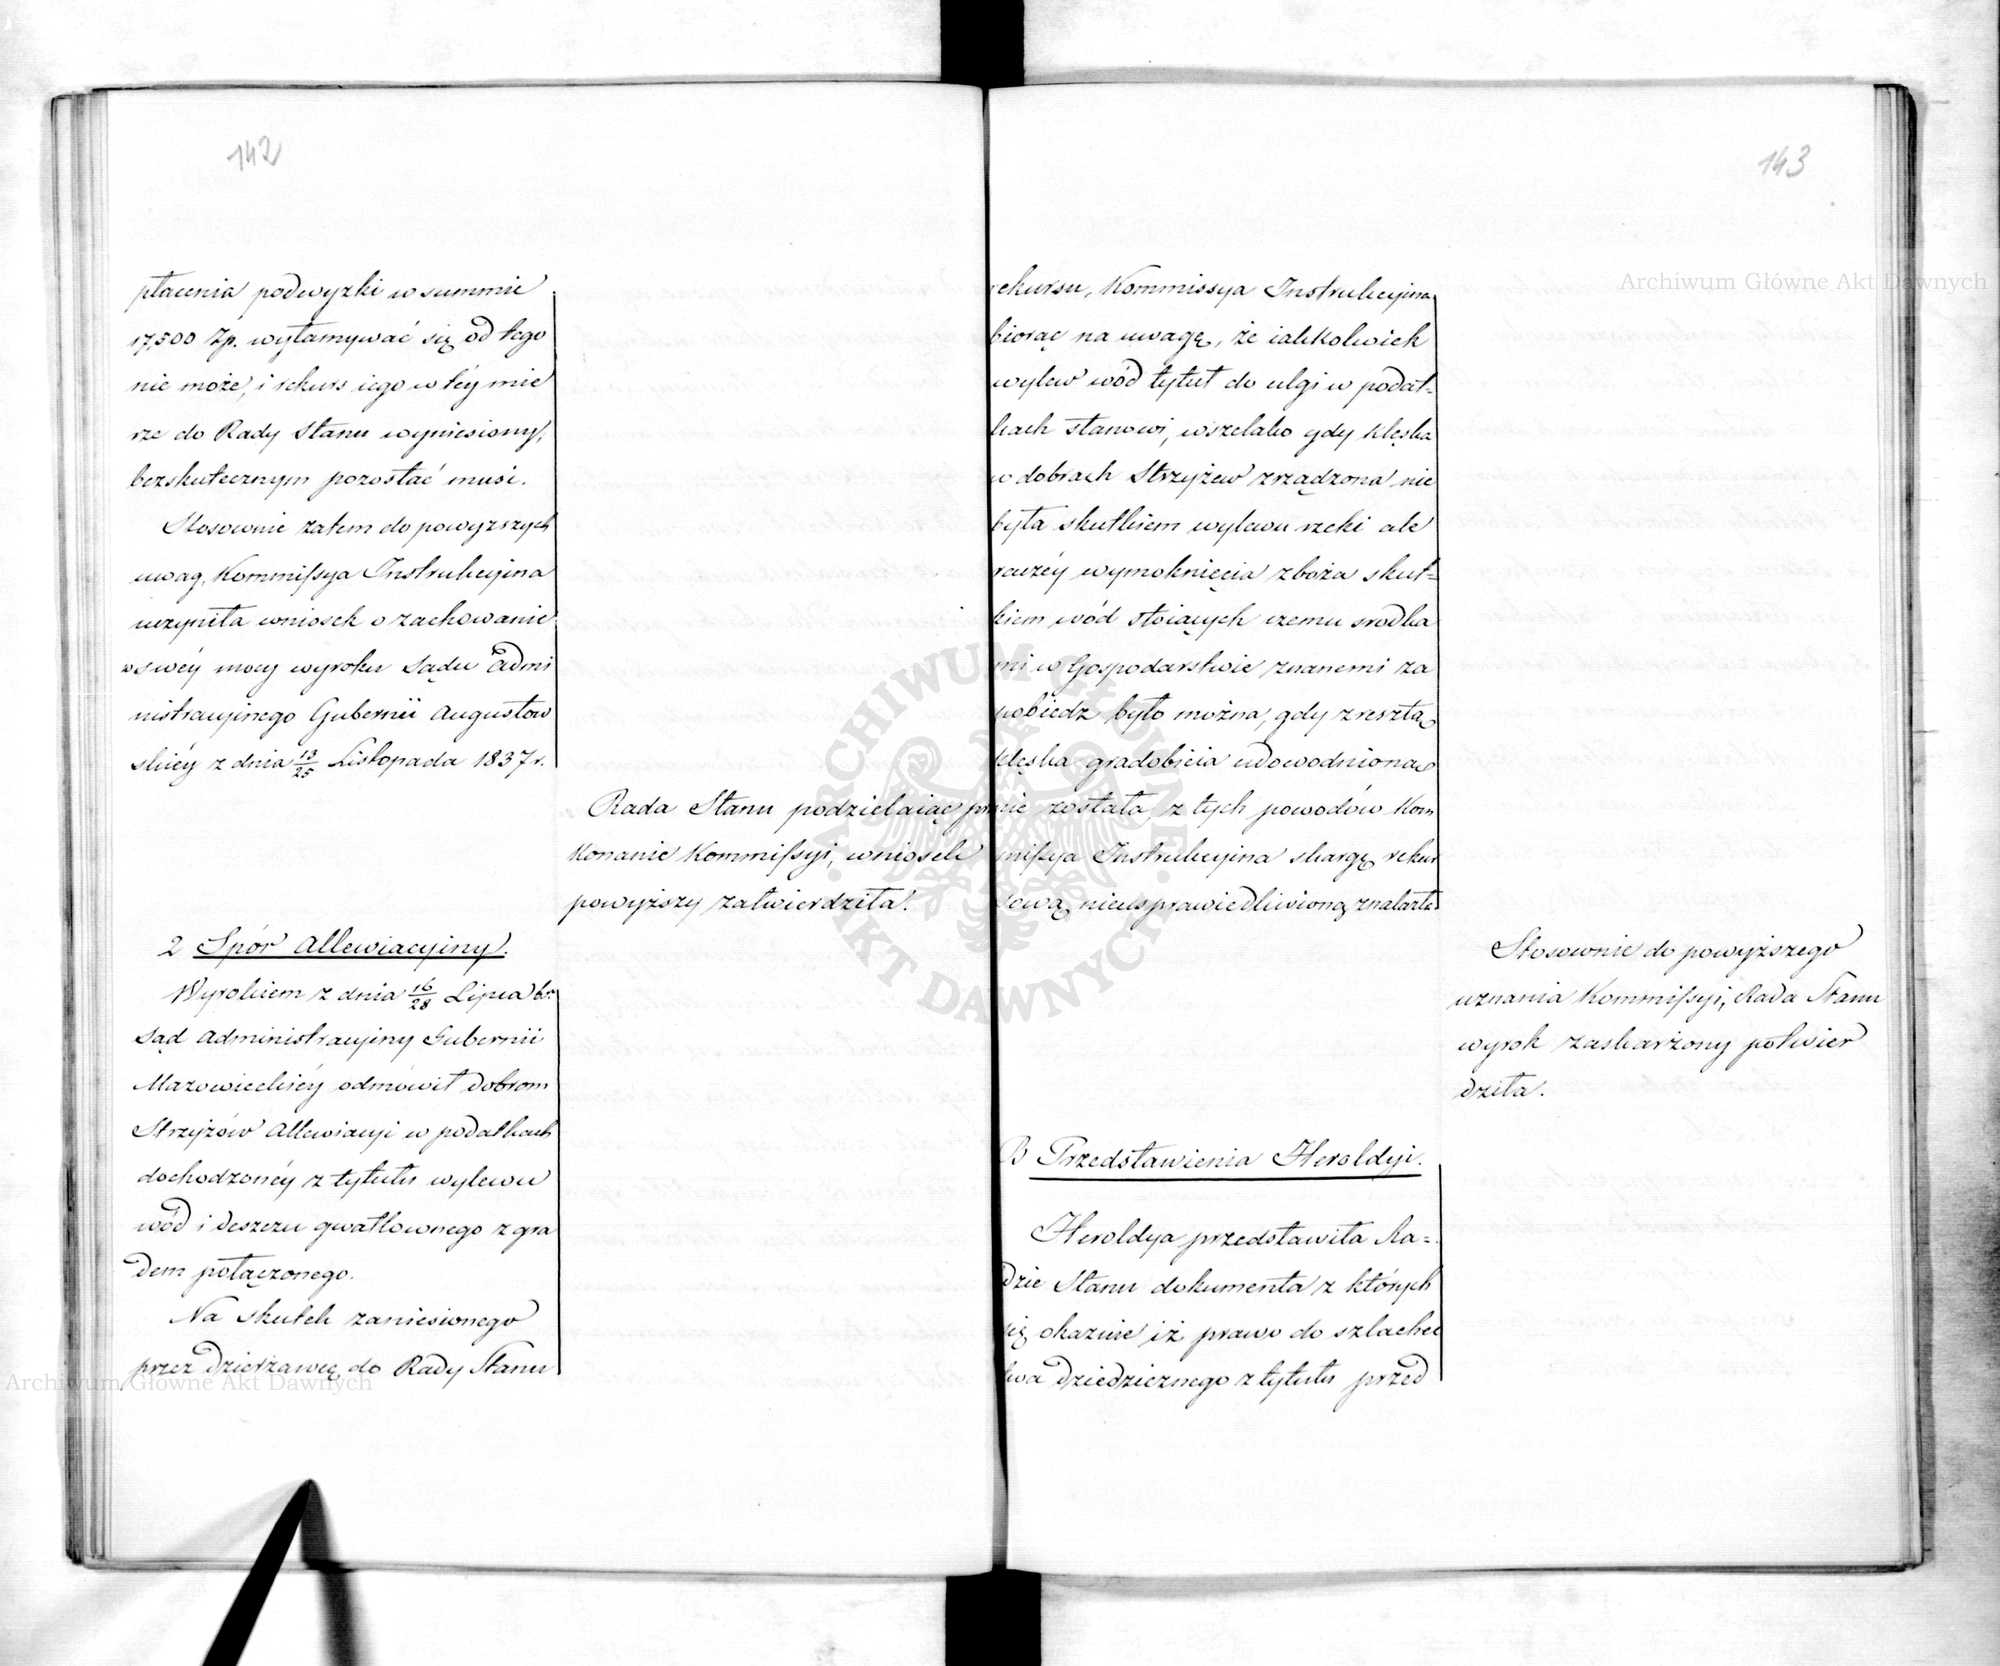 142
płacenia podwyzki w summie
17,500 Zp. wyłamywać się od tego
nie może, i rekurs iego w téy mie
rze do Rady Stanu wyniesiony,
bezskutecznym pozostać musi.
Stosownie zatem do powyzszych
uwag, Kommissya Instrukcyina
uczyniła wniosek o zachowanie
w swéy mocy wyroku Sądu Admi
nistracyinego Gubernii Augustow
skiéy z dnia 13/25 Listopada 1837 r.
Rada Stanu podzielaiąc prze
konanie Kommissyi, wniosek
powyższy zatwierdziła.
2 Spór Allewiacyiny.
Wyrokiem z dnia 16/28 Lipca b.r.
Sąd Administracyiny Gubernii
Mazowieckiéy odmówił dobrom
Strzyżów Allewiacyi w podatkach
dochodzonéy z tytułu wylewu
wód i deszczu gwałtownego z gra
dem połączonego.
Na skutek zaniesionego
przez Dzierżawcę do Rady Stanu
143
rekursu, Kommissya Instrukcyina
biorąc na uwagę, że iakkolwiek
wylew wód tytuł do ulgi w podat=
kach stanowi, wszelako gdy klęska
w dobrach Strzyżew zrządzona nie
była skutkiem wylewu rzeki ale
raczéy wymoknięcia zboża skut=
kiem wód stoiących czemu srodka
mi w Gospodarstwie znanemi za
pobiedz było można, gdy zresztą
klęska gradobicia udowodniona
nie została, z tych powodów Kom
missya Instrukcyina skargę rekur
sową nieusprawiedliwioną znalazła
Stosownie do powyższego
uznania Kommissyi, Rada Stanu
wyrok zaskarżony potwier
dziła.
B Przedstawienia Heroldyi.
Heroldya przedstawiła Ra=
dzie Stanu dokumenta z których
się okazuie iż prawo do szlachec
twa dziedzicznego z tytułu przed
Archiwum Główne Akt Dawnych
Archiwum Główne Akt Dawnych
ARCHIWUM GŁÓWNE AKT DAWNYCH